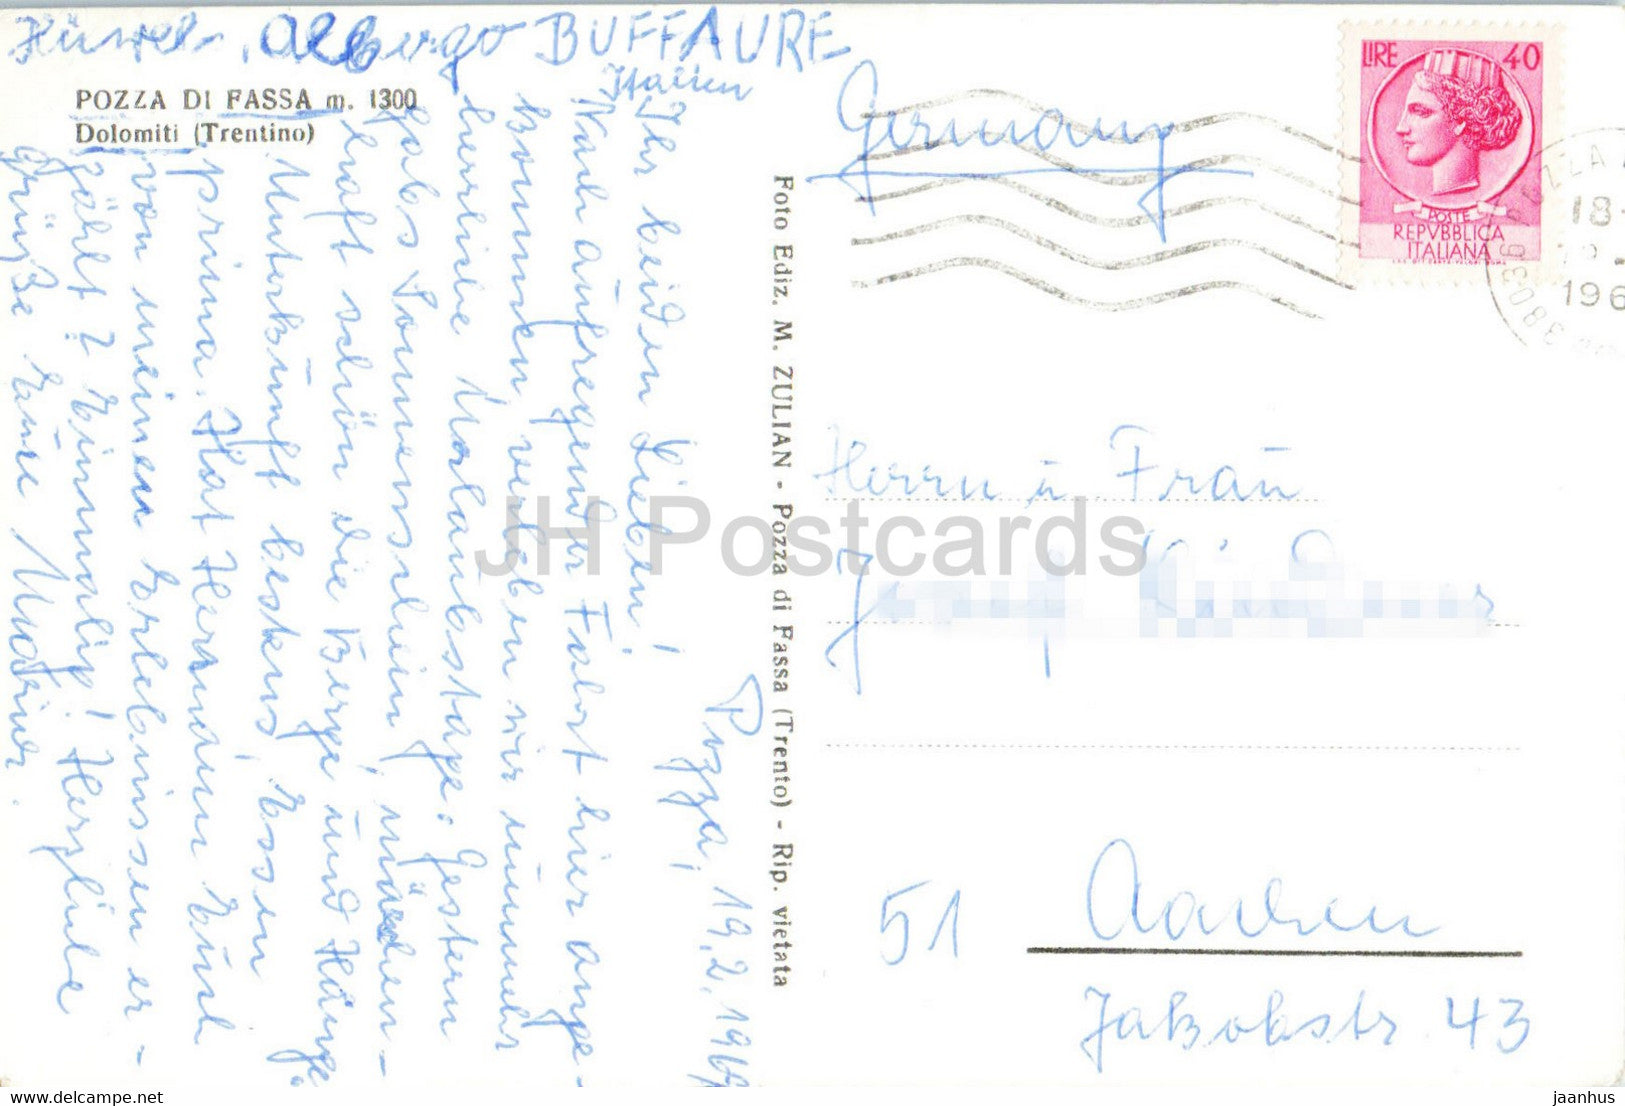 Hüwel, Albergo BUFFAURE
Italien
POZZA DI FASSA m. 1300
Dolomiti (Trentino)
Pozza, 19.2.1969
Ihr beiden Lieben!
Nach aufregender Fahrt hier ange-
kommen, verleben wir nunmehr
herrliche Urlaubstage. Gestern
gabs Sonnenschein, märchen-
haft schön die Berge und Hänge.
Unterkunft bestens, Essen
prima. Hat Hermann Euch
von meinen Erlebnissen er-
zählt? Einmalig! Herzliche
Grüße Eure
Foto Ediz. M. ZULIAN - Pozza di Fassa (Trento) - Rip. vietata
Germany
LIRE 40
POSTE
REPVBBLICA
ITALIANA
POZZA
18-
196
38036
Herrn u Frau
Josef
51 Aachen
Jakobstr 43
JH Postcards
jaanhus © www.delcampe.net